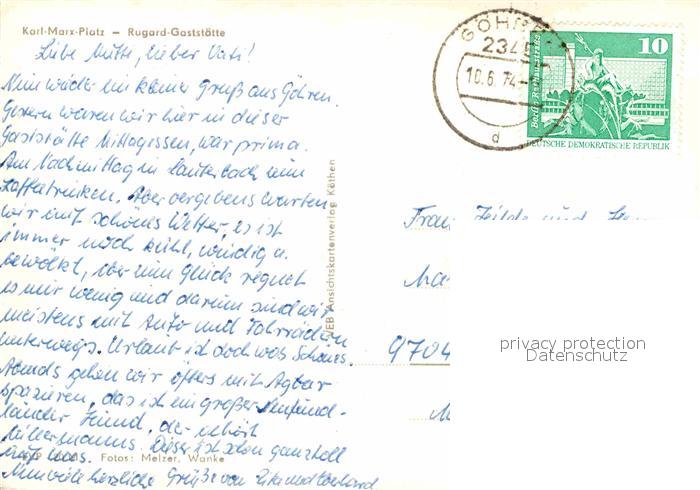 Karl-Marx-Platz – Rugard-Gaststätte
Liebe Mutti, lieber Vati!
Nun wieder ein kleiner Gruß aus Göhren.
Gestern waren wir hier in dieser
Gaststätte Mittagessen, war prima.
Am Nachmittag in Lauterbach zum
Kaffeetrinken. Aber vergebens warten
wir auf schönes Wetter, es ist
immer noch kühl, windig u.
bewölkt, aber zum Glück regnet
es nur wenig und darum sind wir
meistens mit Auto und Fahrrädern
unterwegs. Urlaub ist doch was Schönes.
Abends gehen wir öfters mit
spazieren, das ist ein großer Neufund-
länder Hund, der gehört
Müllermanns. Dieser ist schon ganz toll
auf uns.
Nun viele herzliche Grüße von und Eberhard
Fotos: Melzer, Wanke
VEB Ansichtskartenverlag Köthen
GÖHRE
2345
10.6.74
d
10
DEUTSCHE DEMOKRATISCHE REPUBLIK
Frau und
9704
privacy protection
Datenschutz